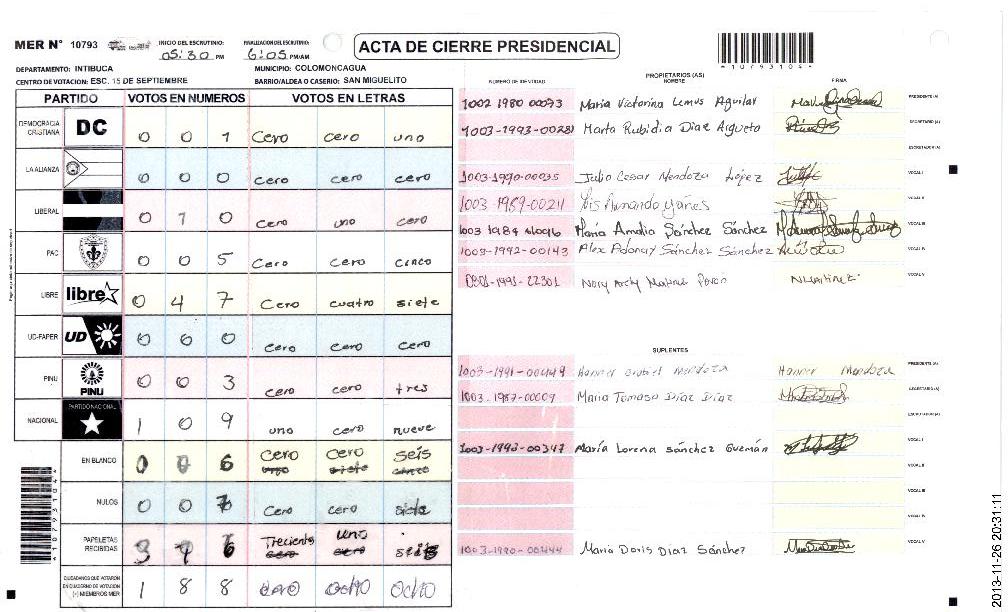 MER Nº 10793
INICIO DEL ESCRUTINIO: 05:30 PM
FINALIZACION ESCRUTINIO: 6:05 PM/AM
ACTA DE CIERRE PRESIDENCIAL
*10793104*
DEPARTAMENTO: INTIBUCA
MUNICIPIO: COLOMONCAGUA
CENTRO DE VOTACION: ESC. 15 DE SEPTIEMBRE
BARRIO/ALDEA O CASERIO: SAN MIGUELITO
PARTIDO VOTOS EN NUMEROS VOTOS EN LETRAS
DEMOCRACIA CRISTIANA DC 0 0 1 Cero cero uno
LA ALIANZA 0 0 0 cero cero cero
LIBERAL 0 1 0 cero uno cero
PAC 0 0 5 Cero cero cinco
LIBRE libre 0 4 7 Cero cuatro siete
UD-FAPER UD 0 0 0 cero cero cero
PINU PINU 0 0 3 cero cero tres
NACIONAL PARTIDO NACIONAL 1 0 9 uno cero nueve
EN BLANCO 0 0 6 cero cero seis
NULOS 0 0 7 cero cero siete
PAPELETAS RECIBIDAS 3 1 6 Trecients uno seis
CIUDADANOS QUE VOTARON EN CUADERNO DE VOTACION (+) MIEMBROS MER 1 8 8 ocho ocho
*10793104*
NUMERO DE IDENTIDAD
PROPIETARIOS (AS)
NOMBRE
FIRMA
1002 1980 00073 Maria Victorina Lemus Aguilar PRESIDENTE (A)
1003-1993-00281 Marta Rubidia Diaz Argueta SECRETARIO (A)
ESCRUTADOR (A)
1003-1990-00035 Julio Cesar Mendoza López VOCAL I
1003-1989-00211 Armando Yanes VOCAL II
1003 1984 Maria Amalia Sánchez Sánchez VOCAL III
1003-1992-00143 Alex Adonay Sánchez Sánchez VOCAL IV
0801-1991-22301 Nory VOCAL V
SUPLENTES
1003-1991-00449 Hanner Mendoza Hanner Mendoza PRESIDENTE (A)
1003-1987-00009 Maria Tomasa Diaz Diaz SECRETARIO (A)
ESCRUTADOR (A)
1003-1992-00347 María Lorena Sánchez Guzmán VOCAL I
VOCAL II
VOCAL III
VOCAL IV
1003-1990-00444 Maria Doris Diaz Sánchez VOCAL V
2013-11-26 20:31:11